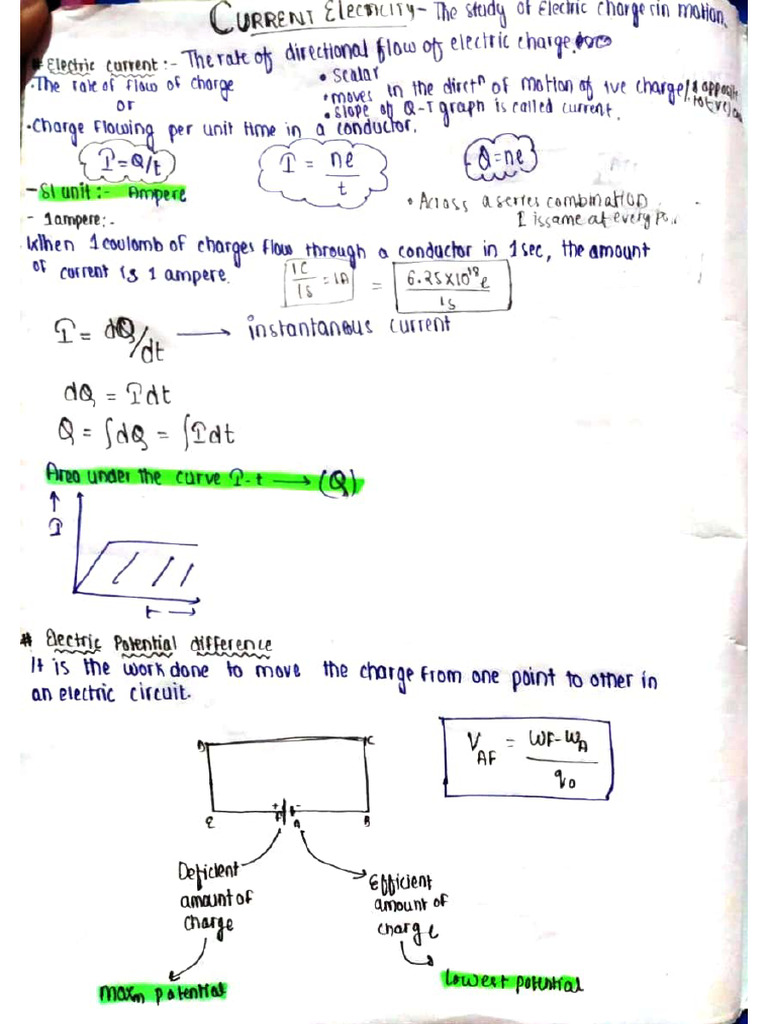 CURRENT Electricity - The study of Electric charge in motion.
# Electric current :- The rate of directional flow of electric charge.
• The rate of flow of charge
or
• Charge flowing per unit time in a conductor.
• scalar
• moves in the directⁿ of motion of +ve charge / & opposite to -ve
• slope of Q-T graph is called current.
I = Q/t
I = ne/t
Q = ne
- SI unit :- Ampere
• Across a series combination
I is same at every
- 1 ampere :-
When 1 coulomb of charges flow through a conductor in 1 sec, the amount
of current is 1 ampere.
1C/1s = 1A = 6.25X10¹⁸e/1s
I = dQ/dt → instantanous current
dQ = Idt
Q = ∫dQ = ∫Idt
Area under the curve I-t → (Q)
↑
I
t →
# Electric Potential difference
It is the work done to move the charge from one point to other in
an electric circuit.
V_AF = WF-W_A / q₀
D C
+ -
E F A B
Deficient
amount of
charge
Efficient
amount of
charge
maxm potential
lowest potential